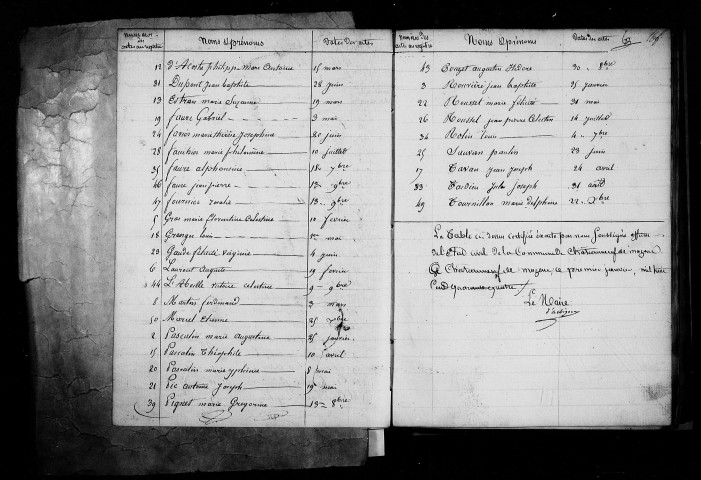 Numéros des actes au registre Noms & prénoms Dates des actes
12 d'Alcosta philippe marc antoine 15 mars
31 Dupont jean baptiste 28 juin
13 Estran marie Suzanne 19 mars
19 Faure Gabriel 3 mai
24 marie thérèse Josephine 20 juin
28 Fauchier marie philomène 10 juillet
35 Faure alphonsine 18 7bre
46 Faure jean pierre 13 9bre
47 Fournier rosalie 13 9bre
5 Gras marie florentine Celestine 10 fevrier
18 Granger louis 1er mai
23 Gaude félicité virginie 4 juin
6 Laurent Auguste 19 fevrier
44 L'Abeille victoire celestine 9 9bre
8 Martin ferdinand 3 mars
50 Morrel Etienne 25 xbre
2 Pascalin marie augustine 25 janvier
15 Pascalin Théophile 10 avril
20 Pascalin marie 8 mai
21 Pic antoine Joseph 19 mai
39 Pignet marie Gregorine 13 8bre
Numéros des actes au registre Noms & prénoms Dates des actes
43 augustin Isidore 30 8bre
3 Rouvière jean baptiste 25 janvier
22 Roussel marie félicité 31 mai
26 Roussel jean pierre Celestin 14 juillet
34 Rolin louis 4 7bre
25 Sauvan paulin 23 juin
17 Tavan jean joseph 24 avril
33 Tardieu Jules Joseph 31 août
49 Tournillon marie delphine 22 xbre
La Table ci dessus certifiée exacte par nous Soussigné officier
de l'état civil de la Commune de Chateauneuf de mazenc
à Chateauneuf de mazenc ce premier janvier, mil huit
Cent quarante quatre
Le Maire